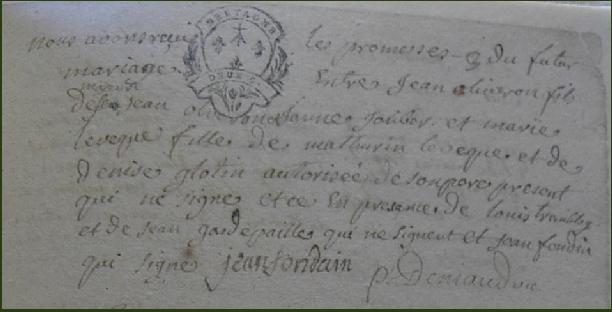 nous avons reçu les promesses du futur
BRETAGNE
DEUX S
mariage entre Jean oliveron fils
mineur
de feu Jean oliveron et anne joubert et marie
leveque fille de mathurin leveque et de
Denise glotin autorisée de son pere present
qui ne signe et ce en presance de louis tramblez
et de jean gardepaille qui ne signent et jean fondin
qui signe jean fondain
p. Deniaud